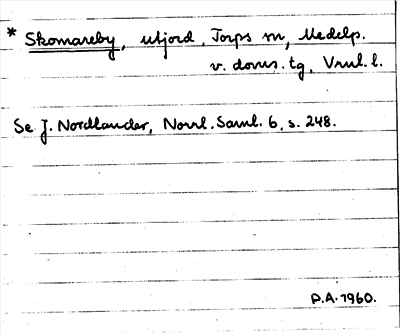 * Skomareby, utjord, Torps sn, Medelp.
v. doms. tg, Vrul. l.
Se J. Nordlander, Norrl. Saml. 6, s. 248.
P.A. 1960.